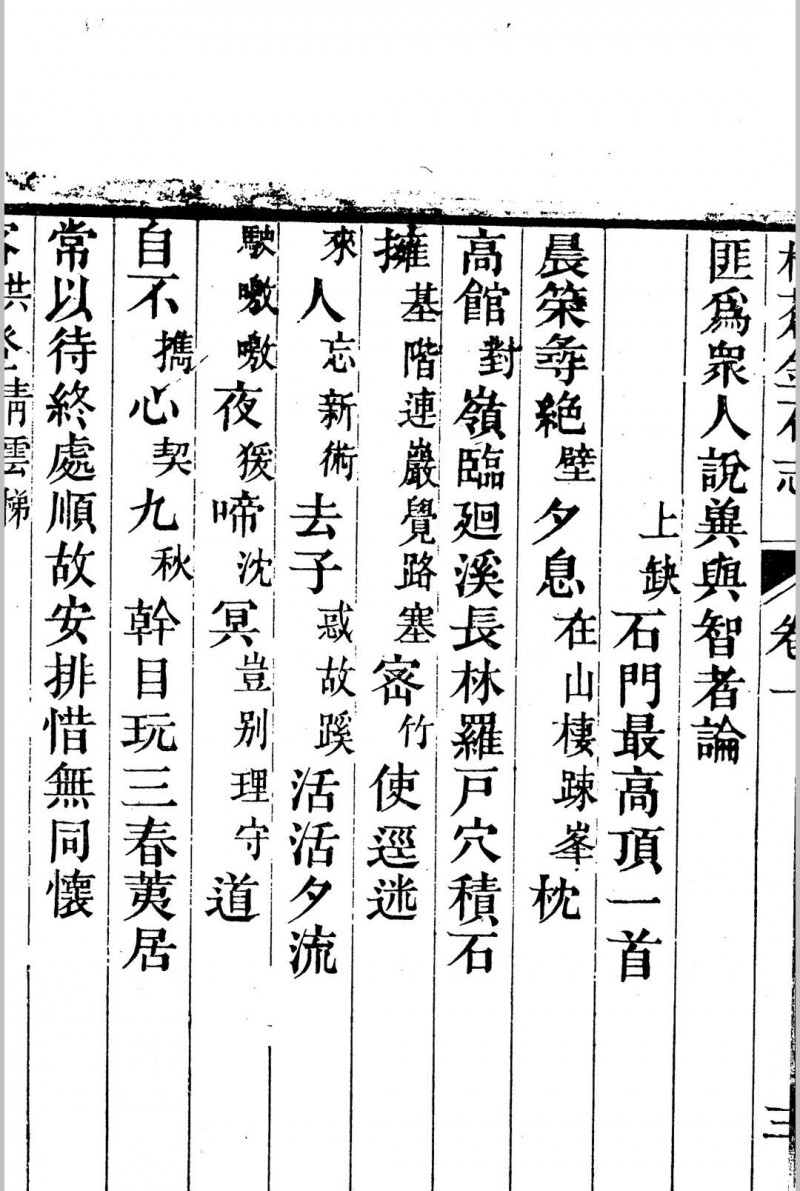 栝蒼金石志 卷一 三
匪爲衆人說兾與智者論
上缺石門最高頂一首
晨策尋絶壁夕息在山棲踈峯枕
高館對嶺臨廻溪長林羅戸穴積石
擁基階連巖覺路塞密竹使逕迷
來人忘新術去子惑故蹊活活夕流
駛噭噭夜猨啼沈冥豈别理守道
自不擕心契九秋幹目玩三春荑居
常以待終處順故安排惜無同懷
客共登靑雲梯